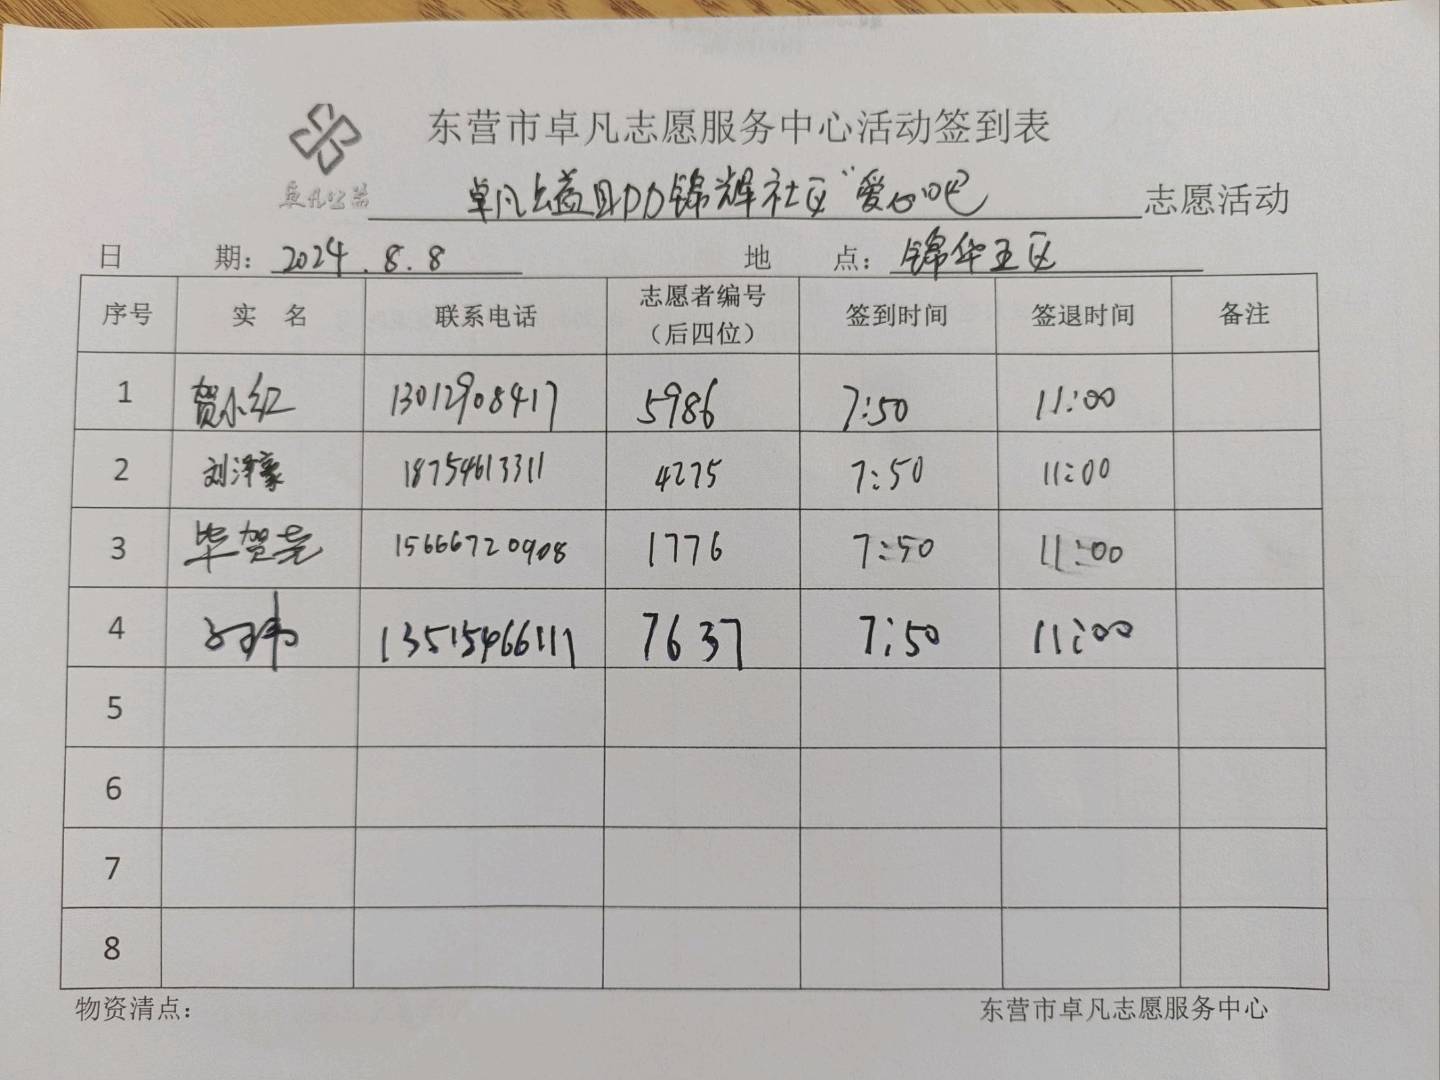 东营市卓凡志愿服务中心活动签到表
卓凡公益
卓凡公益助力锦辉社区“爱心吧 志愿活动
日 期: 2024.8.8 地 点: 锦华五区
序号 实 名 联系电话 志愿者编号（后四位） 签到时间 签退时间 备注
1 贺小红 13012908417 5986 7:50 11:00
2 刘泽豪 18754613311 4275 7:50 11:00
3 毕贺尧 15666720908 1776 7:50 11:00
4 13515466111 7637 7:50 11:00
5
6
7
8
物资清点: 东营市卓凡志愿服务中心